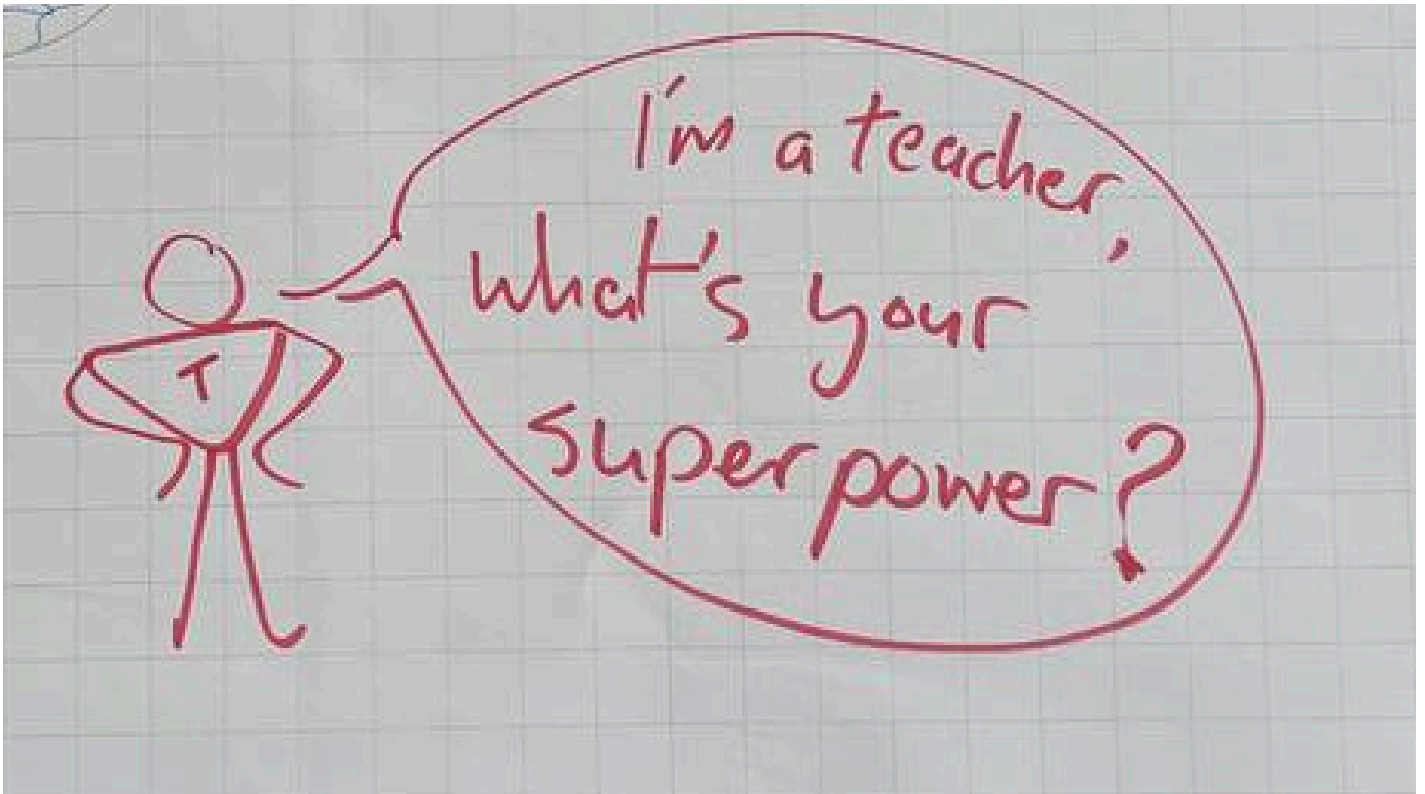 I'm a teacher,
what's your
superpower?
T